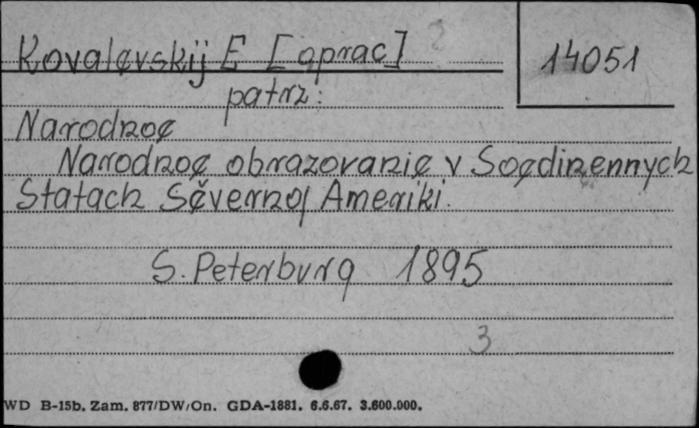 Kovalevskij E [oprac]
14051
patrz:
Narodnoe
Narodnoe obrazovanie v Soedinennych
Štatach Sěvernoj Ameriki.
S. Peterburg 1895
3
WD B-15b. Zam. 877/DW/On. GDA-1881. 6.6.67. 3.600.000.